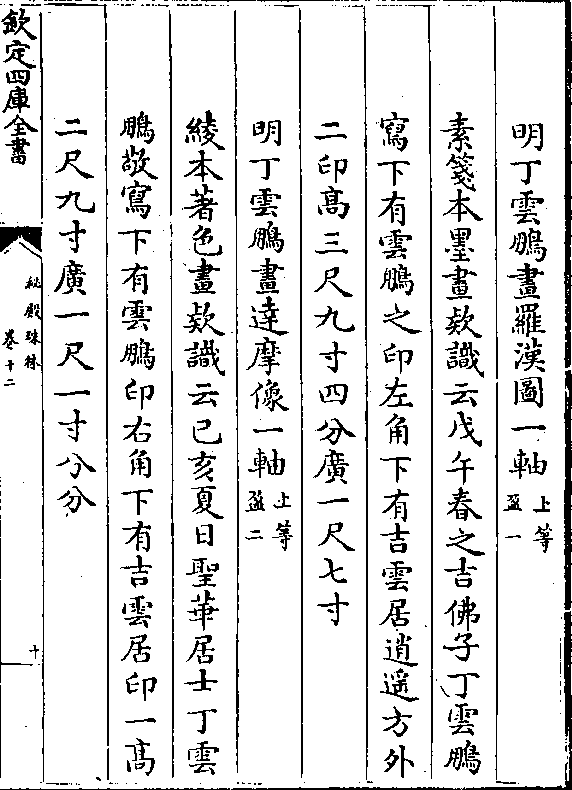 明丁雲鵬畫羅漢圖一軸上等盈一
素箋本墨畫欵識云戊午春之吉佛子丁雲鵬
寫下有雲鵬之印左角下有吉雲居逍遥方外
二印髙三尺九寸四分廣一尺七寸
明丁雲鵬畫達摩像一軸上等盈二
綾本著色畫欵識云已亥夏日聖華居士丁雲
鵬敬寫下有雲鵬印右角下有吉雲居印一髙
二尺九寸廣一尺一寸八分
欽定四庫全書
秘殿珠林
卷十二
十